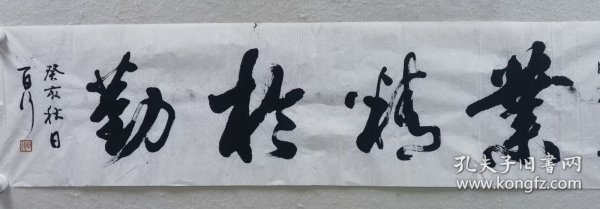 業精於勤
癸亥秋日
百川
孔夫子旧书网
www.kongfz.com